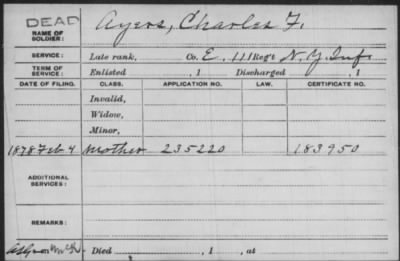 DEAD
NAME OF SOLDIER: Ayers, Charles F.
SERVICE: Late rank, Co. E, 111 Reg't N.Y. Inf.
TERM OF SERVICE: Enlisted , 1 Discharged , 1
DATE OF FILING. CLASS. APPLICATION NO. LAW. CERTIFICATE NO.
Invalid,
Widow,
Minor,
1878 Feb 4 Mother 235220 183950
ADDITIONAL SERVICES:
REMARKS:
Died , 1 , at